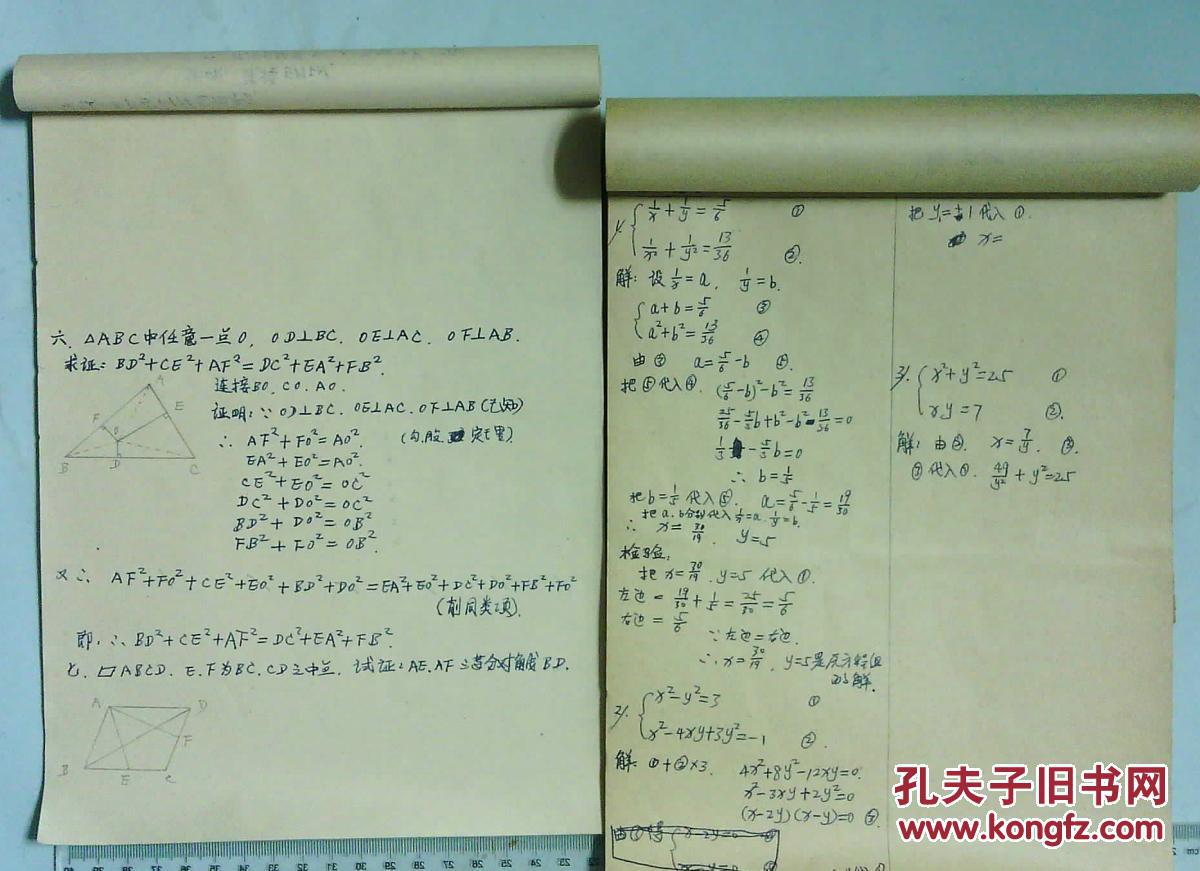 六. △ABC中任意一点O, OD⊥BC. OE⊥AC. OF⊥AB.
求证: BD²+CE²+AF²=DC²+EA²+FB².
连接BO. CO. AO.
证明: ∵ OD⊥BC. OE⊥AC. OF⊥AB (已知)
∴ AF²+FO²=AO². (勾股定理)
EA²+EO²=AO².
CE²+EO²=OC²
DC²+DO²=OC²
BD²+DO²=OB²
FB²+FO²=OB².
A
F
E
O
B
D
C
又∴ AF²+FO²+CE²+EO²+BD²+DO²=EA²+EO²+DC²+DO²+FB²+FO²
(削同类项).
即: ∴ BD²+CE²+AF²=DC²+EA²+FB².
七. ▱ABCD. E. F为BC. CD之中点. 试证: AE. AF三等分对角线BD.
A
D
F
B
E
C
1/. {1/x+1/y=5/6 ①
1/x²+1/y²=13/36 ②.
解: 设1/x=a, 1/y=b.
{a+b=5/6 ③
a²+b²=13/36 ④
由③ a=5/6-b ⑤.
把⑤代入④. (5/6-b)²-b²=13/36
25/36-5/3b+b²-b²-13/36=0
1/3-5/3b=0
∴ b=1/5
把b=1/5代入⑤. a=5/6-1/5=19/30
把a. b分别代入1/x=a. 1/y=b.
∴ x=30/19. y=5
检验:
把x=30/19. y=5代入①.
左边=19/30+1/5=25/30=5/6
右边=5/6
∵左边=右边.
∴ x=30/19, y=5是原方程组
的解.
2/. {x²-y²=3 ①
x²-4xy+3y²=-1 ②.
解: ①+②×3. 4x²+8y²-12xy=0.
x²-3xy+2y²=0
(x-2y)(x-y)=0 ③.
x-2y=0
把y=±1代入①.
x=
3/. {x²+y²=25 ①
xy=7 ②.
解: 由②. x=7/y. ③.
③代入①. 49/y²+y²=25
孔夫子旧书网
www.kongfz.com